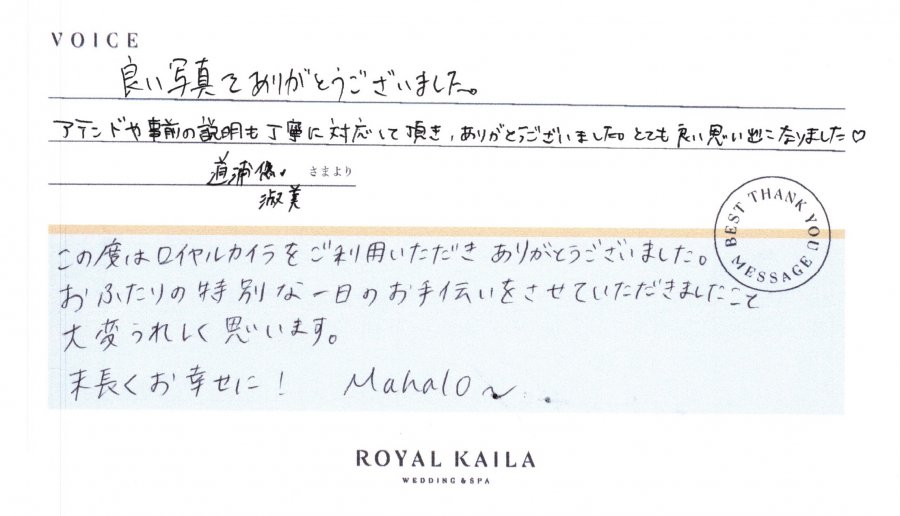 VOICE
良い写真でありがとうございました。
アテンドや事前の説明も丁寧に対応して頂き、ありがとうございました。とても良い思い出になりました♡
道浦 さまより
淑美
BEST THANK YOU MESSAGE
この度はロイヤルカイラをご利用いただき ありがとうございました。
おふたりの特別な一日のお手伝いをさせていただきましたこと
大変うれしく思います。
末長くお幸せに! Mahalo~
ROYAL KAILA
WEDDING & SPA